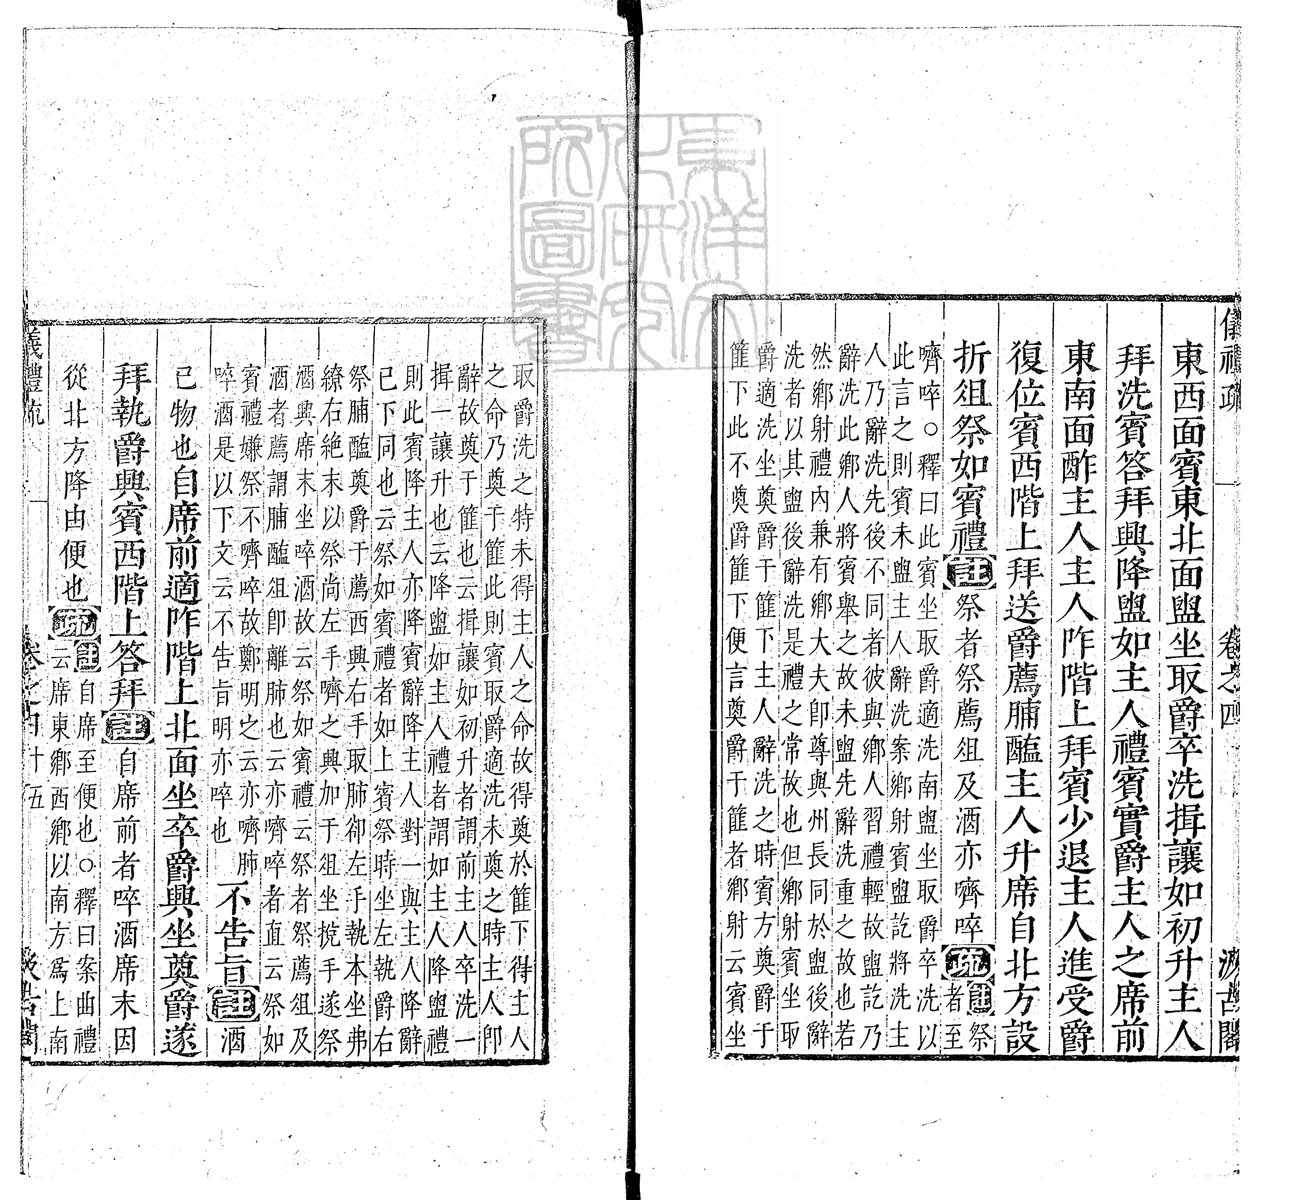 儀禮疏 卷之四 汲古閣
東西面賓東北面盥坐取爵卒洗揖讓如初升主人
拜洗賓答拜興降盥如主人禮賓實爵主人之席前
東南面酢主人主人阼階上拜賓少退主人進受爵
復位賓西階上拜送爵薦脯醢主人升席自北方設
折俎祭如賓禮註祭者祭薦俎及酒亦嚌啐疏註祭者至
嚌啐○釋曰此賓坐取爵適洗南盥坐取爵卒洗以
此言之則賓未盥主人辭洗案鄉射賓盥訖將洗主
人乃辭洗先後不同者彼與鄉人習禮輕故盥訖乃
辭洗此鄉人將賓舉之故未盥先辭洗重之故也若
然鄉射禮內兼有鄉大夫卽尊與州長同於盥後辭
洗者以其盥後辭洗是禮之常故也但鄉射賓坐取
爵適洗坐奠爵于篚下主人辭洗之時賓方奠爵于
篚下此不奠爵篚下便言奠爵于篚者鄉射云賓坐
取爵洗之特未得主人之命故得奠於篚下得主人
之命乃奠于篚此則賓取爵適洗未奠之時主人卽
辭故奠于篚也云揖讓如初升者謂前主人卒洗一
揖一讓升也云降盥如主人禮者謂如主人降盥禮
則此賓降主人亦降賓辭降主人對一與主人降辭
已下同也云祭如賓禮者如上賓祭時坐左執爵右
祭脯醢奠爵于薦西興右手取肺卻左手執本坐弗
繚右絕末以祭尚左手嚌之興加于俎坐挩手遂祭
酒興席末坐啐酒故云祭如賓禮云祭者祭薦俎及
酒者薦謂脯醢俎卽離肺也云亦嚌啐者直云祭如
賓禮嫌祭不嚌啐故鄭明之云亦嚌肺
啐酒是以下文云不告旨明亦啐也 不告旨註酒
己物也自席前適阼階上北面坐卒爵興坐奠爵遂
拜執爵興賓西階上答拜註自席前者啐酒席末因
從北方降由便也疏註自席至便也○釋曰案曲禮
云席東鄉西鄉以南方爲上南
儀禮疏 卷之四 十五 汲古閣